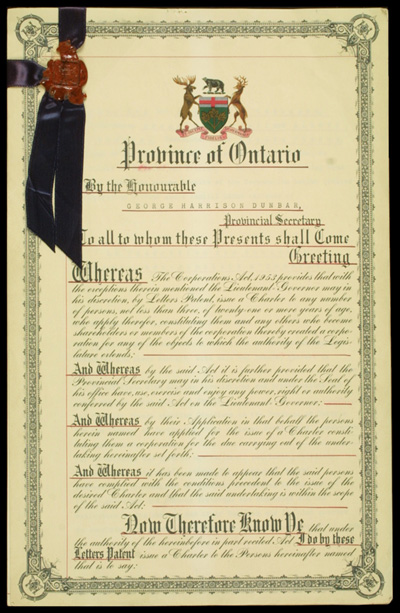 Province of Ontario
By the Honourable
GEORGE HARRISON DUNBAR,
Provincial Secretary
To all to whom these Presents shall Come
Greeting
Whereas The Corporations Act, 1953 provides that with
the exceptions therein mentioned the Lieutenant Governor may in
his discretion, by Letters Patent, issue a Charter to any number
of persons, not less than three, of twenty-one or more years of age,
who apply therefor, constituting them and any others who become
shareholders or members of the corporation thereby created a corpo-
ration for any of the objects to which the authority of the Legis-
lature extends:
And Whereas by the said Act it is further provided that the
Provincial Secretary may in his discretion and under the Seal of
his office have, use, exercise and enjoy any power, right or authority
conferred by the said Act on the Lieutenant Governor:
And Whereas by their Application in that behalf the persons
herein named have applied for the issue of a Charter consti-
tuting them a corporation for the due carrying out of the under-
taking hereinafter set forth:
And Whereas it has been made to appear that the said persons
have complied with the conditions precedent to the issue of the
desired Charter and that the said undertaking is within the scope
of the said Act:
Now Therefore Know Ye that under
the authority of the hereinbefore in part recited Act I do by these
Letters Patent issue a Charter to the Persons hereinafter named
that is to say: